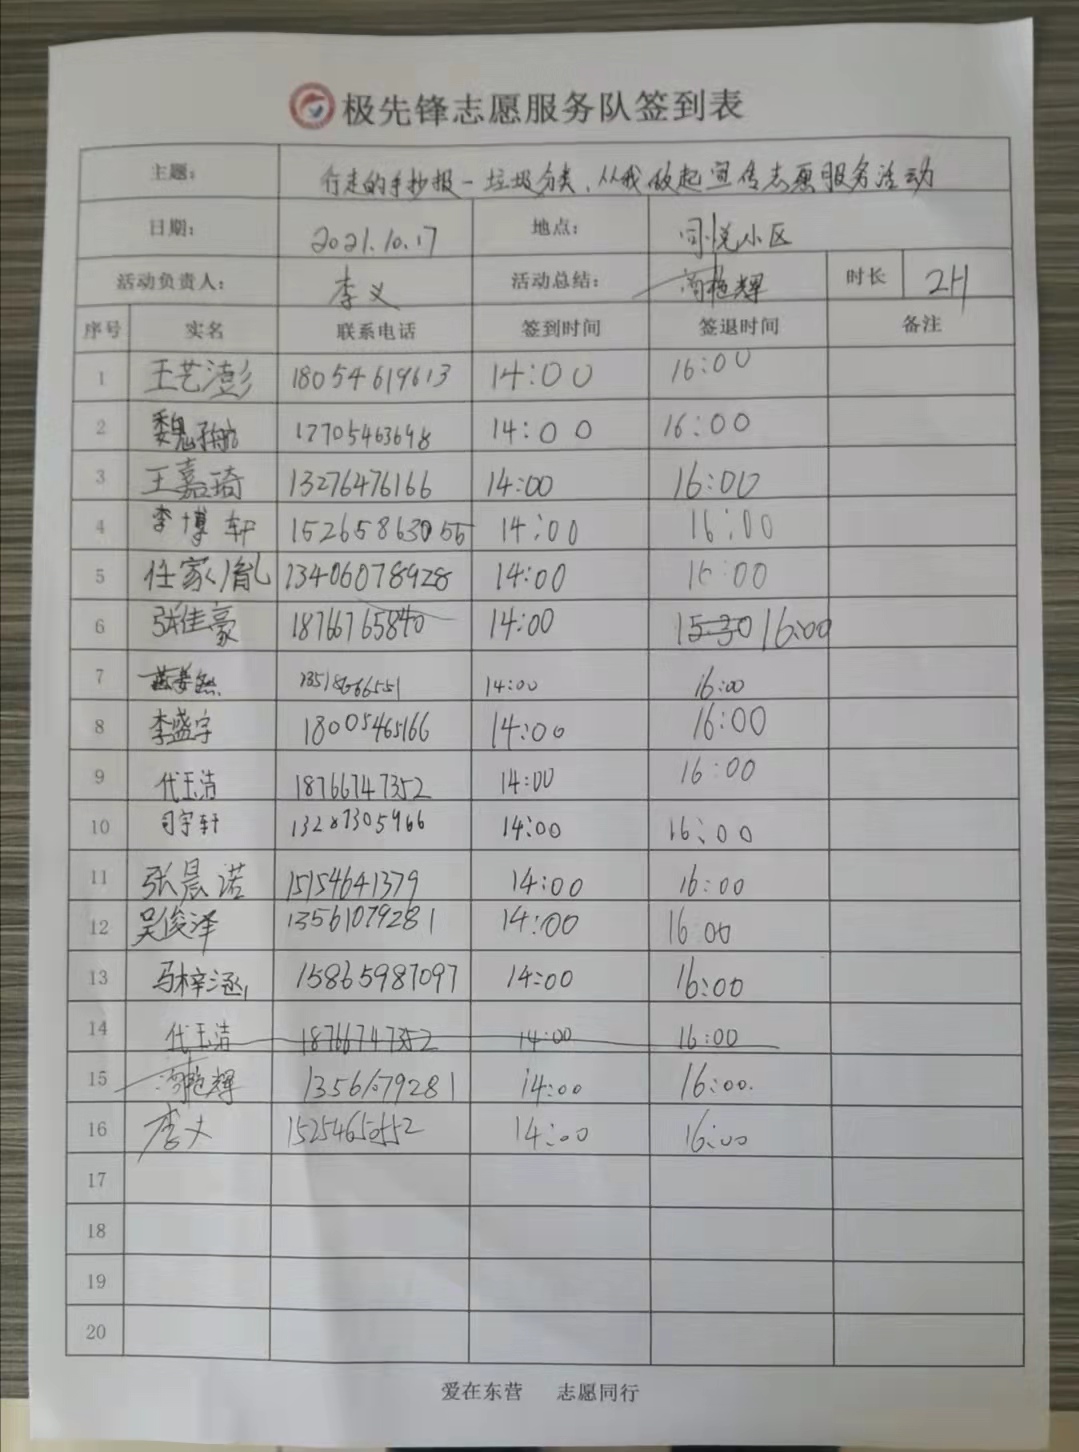 极先锋志愿服务队签到表
主题： 行走的手抄报－垃圾分类，从我做起宣传志愿服务活动
日期： 2021.10.17 地点： 同悦小区
活动负责人： 李义 活动总结： 艳辉 时长 2H
序号 实名 联系电话 签到时间 签退时间 备注
1 王艺澎 18054619613 14:00 16:00
2 魏 17705463698 14:00 16:00
3 王嘉琦 13276476166 14:00 16:00
4 李博轩 15265863055 14:00 16:00
5 任家胤 13406078928 14:00 16:00
6 张佳豪 18766765840 14:00 15:30 16:00
7 14:00 16:00
8 李盛宇 18005465166 14:00 16:00
9 代玉洁 18766747352 14:00 16:00
10 司宇轩 13287305966 14:00 16:00
11 张晨诺 15154641379 14:00 16:00
12 吴俊泽 13561079281 14:00 16:00
13 马梓涵 15865987097 14:00 16:00
14 代玉洁 18766747352 14:00 16:00
15 艳辉 13561079281 14:00 16:00.
16 李义 15254650552 14:00 16:00
17
18
19
20
爱在东营 志愿同行